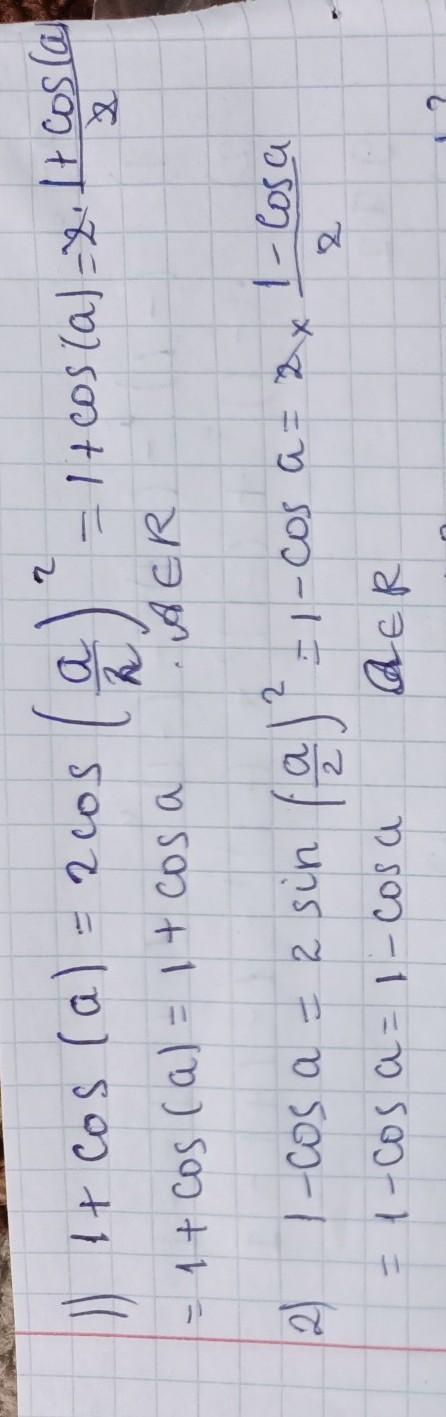 1) 1 + cos (a) = 2 cos (a/2)² = 1 + cos (a) = 2 · 1 + cos (a)/2
= 1 + cos (a) = 1 + cos a . a ∈ R
2) 1 - cos a = 2 sin (a/2)² = 1 - cos a = 2 × 1 - cos a/2
= 1 - cos a = 1 - cos a a ∈ R